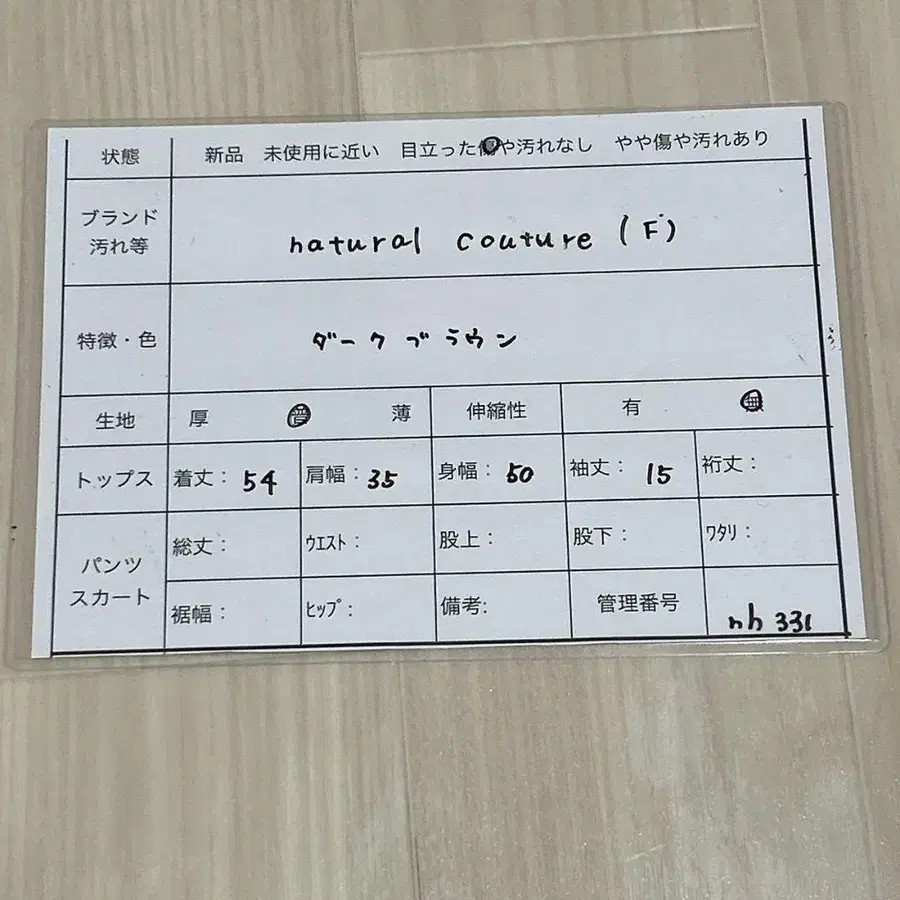 状態 新品 未使用に近い 目立った傷や汚れなし やや傷や汚れあり
ブランド
汚れ等
natural couture (F)
特徴・色 ダークブラウン
生地 厚 普 薄 伸縮性 有 無
トップス 着丈: 54 肩幅: 35 身幅: 50 袖丈: 15 裄丈:
パンツ
スカート
総丈: ウエスト: 股上: 股下: ワタリ:
裾幅: ヒップ: 備考: 管理番号 nh 331